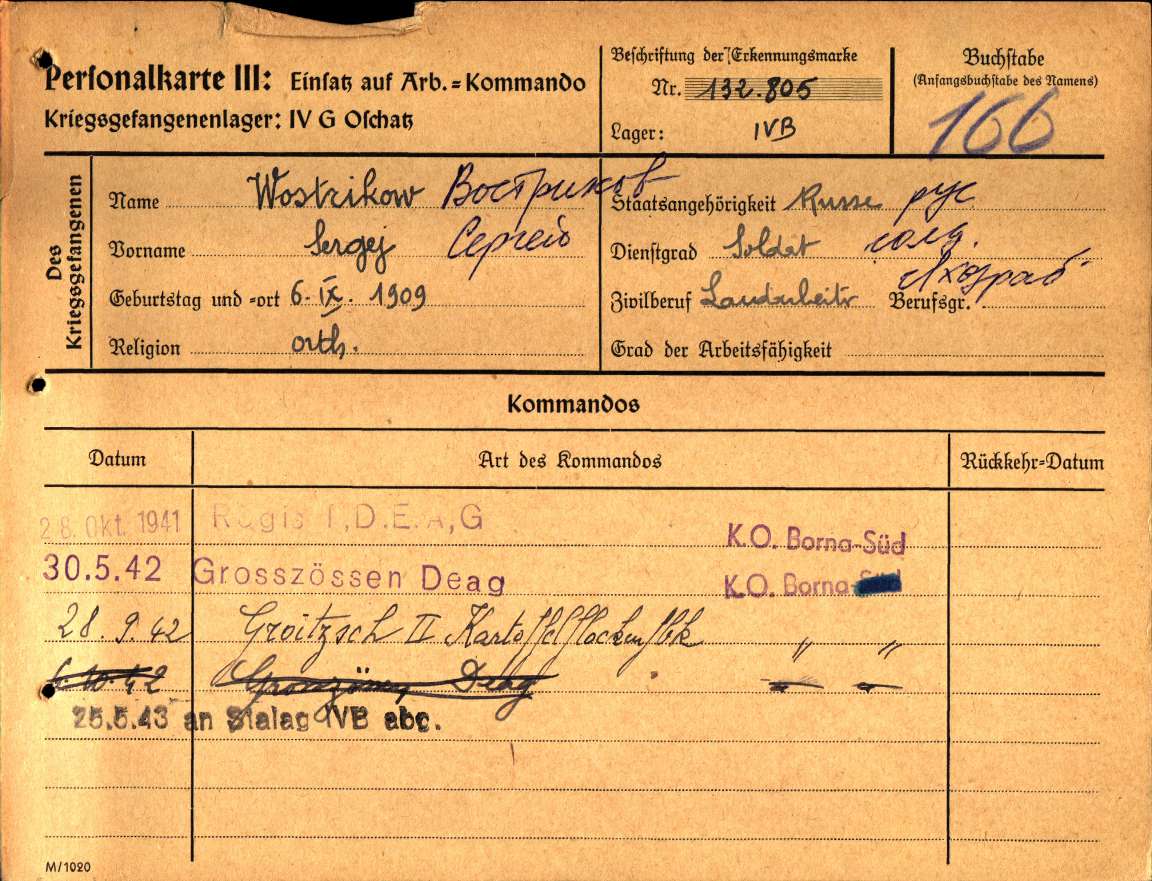 Personalkarte III: Einsatz auf Arb.=Kommando
Kriegsgefangenenlager: IV G Oschatz
Beschriftung der Erkennungsmarke
Nr. 132.805
Lager: IVB
Buchstabe
(Anfangsbuchstabe des Namens)
166
Des Kriegsgefangenen
Name Wostrikow Востриков
Vorname Sergej Сергей
Geburtstag und -ort 6. IX. 1909
Religion orth.
Staatsangehörigkeit Russe рус
Dienstgrad Soldat солд.
Zivilberuf Landarbeitr Berufsgr.
Grad der Arbeitsfähigkeit
Kommandos
Datum Art des Kommandos Rückkehr-Datum
28. Okt. 1941 Regis I, D.E.A,G K.O. Borna-Süd
30.5.42 Grosszössen Deag K.O. Borna-Süd
28. 9. 42 Groitzsch II Kartoffelflockenfbk " "
Deag
25.5.43 an Stalag IVB abg.
M/1020